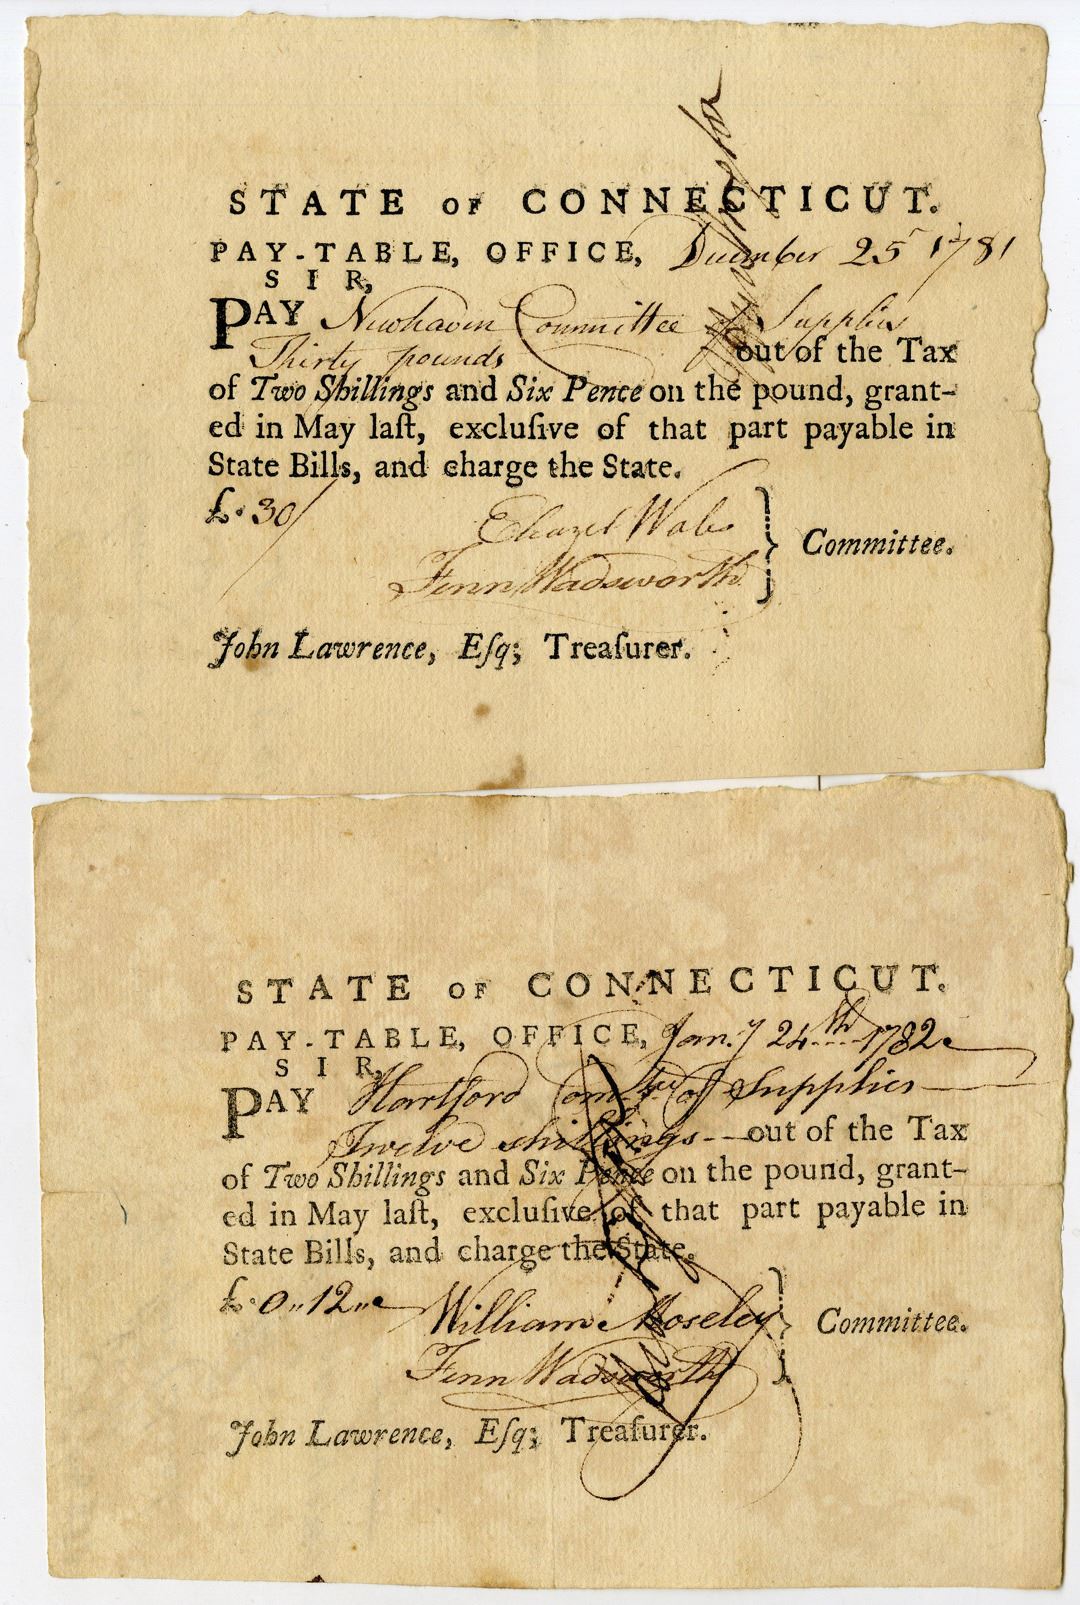 STATE OF CONNECTICUT.
PAY-TABLE, OFFICE, December 25 1781
SIR,
PAY Newhaven Committee of Supplies
Thirty pounds out of the Tax
of Two Shillings and Six Pence on the pound, grant-
ed in May laſt, excluſive of that part payable in
State Bills, and charge the State.
£.30/
Eleazer Wales
Fenn Wadsworth
Committee.
John Lawrence, Eſq; Treaſurer.
STATE OF CONNECTICUT.
PAY-TABLE, OFFICE, Jan.y 24th 1782
SIR,
PAY Hartford Comttee of Supplies
Twelve shillings -- out of the Tax
of Two Shillings and Six Pence on the pound, grant-
ed in May laſt, excluſive of that part payable in
State Bills, and charge the State.
£.0"12"
William Moseley
Fenn Wadsworth
Committee.
John Lawrence, Eſq; Treaſurer.